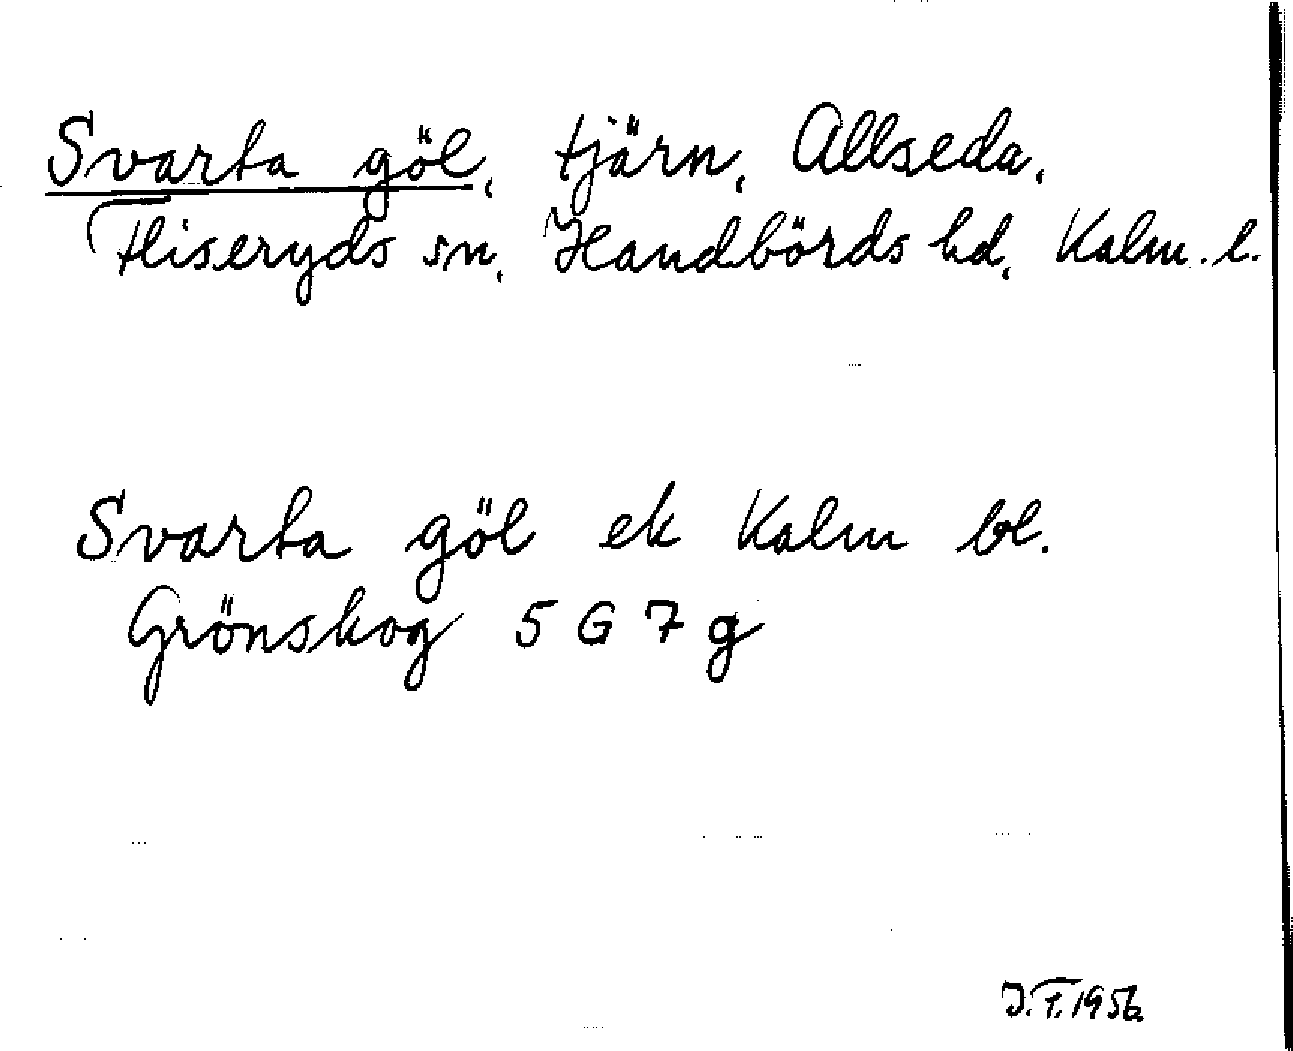 Svarta göl, tjärn, Allseda,
Fliseryds sn, Handbörds hd, Kalm. l.
Svarta göl ek Kalm bl.
Grönskog 5 G 7 g
J.F. 1956